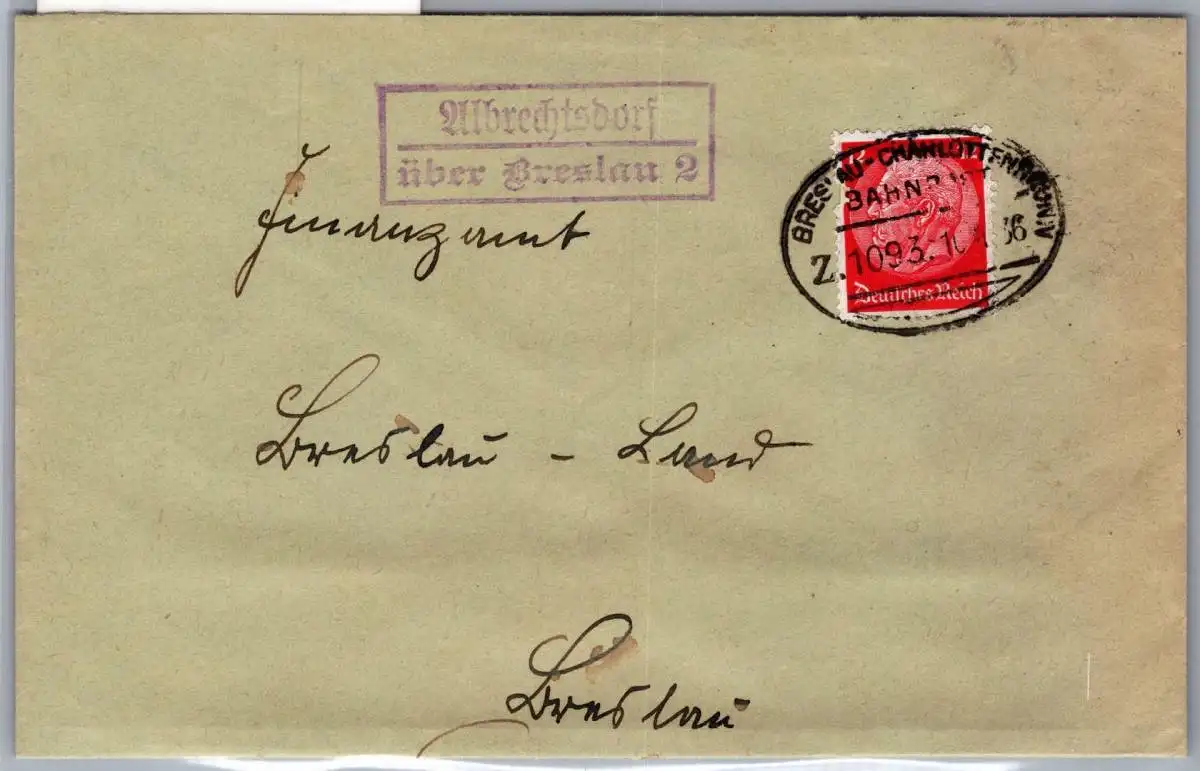 Albrechtsdorf
über Breslau 2
Finanzamt
BRESLAU - CHARLOTTENBRUNN
BAHNPOST
Z. 1093. 36
Deutsches Reich
Breslau - Land
Breslau